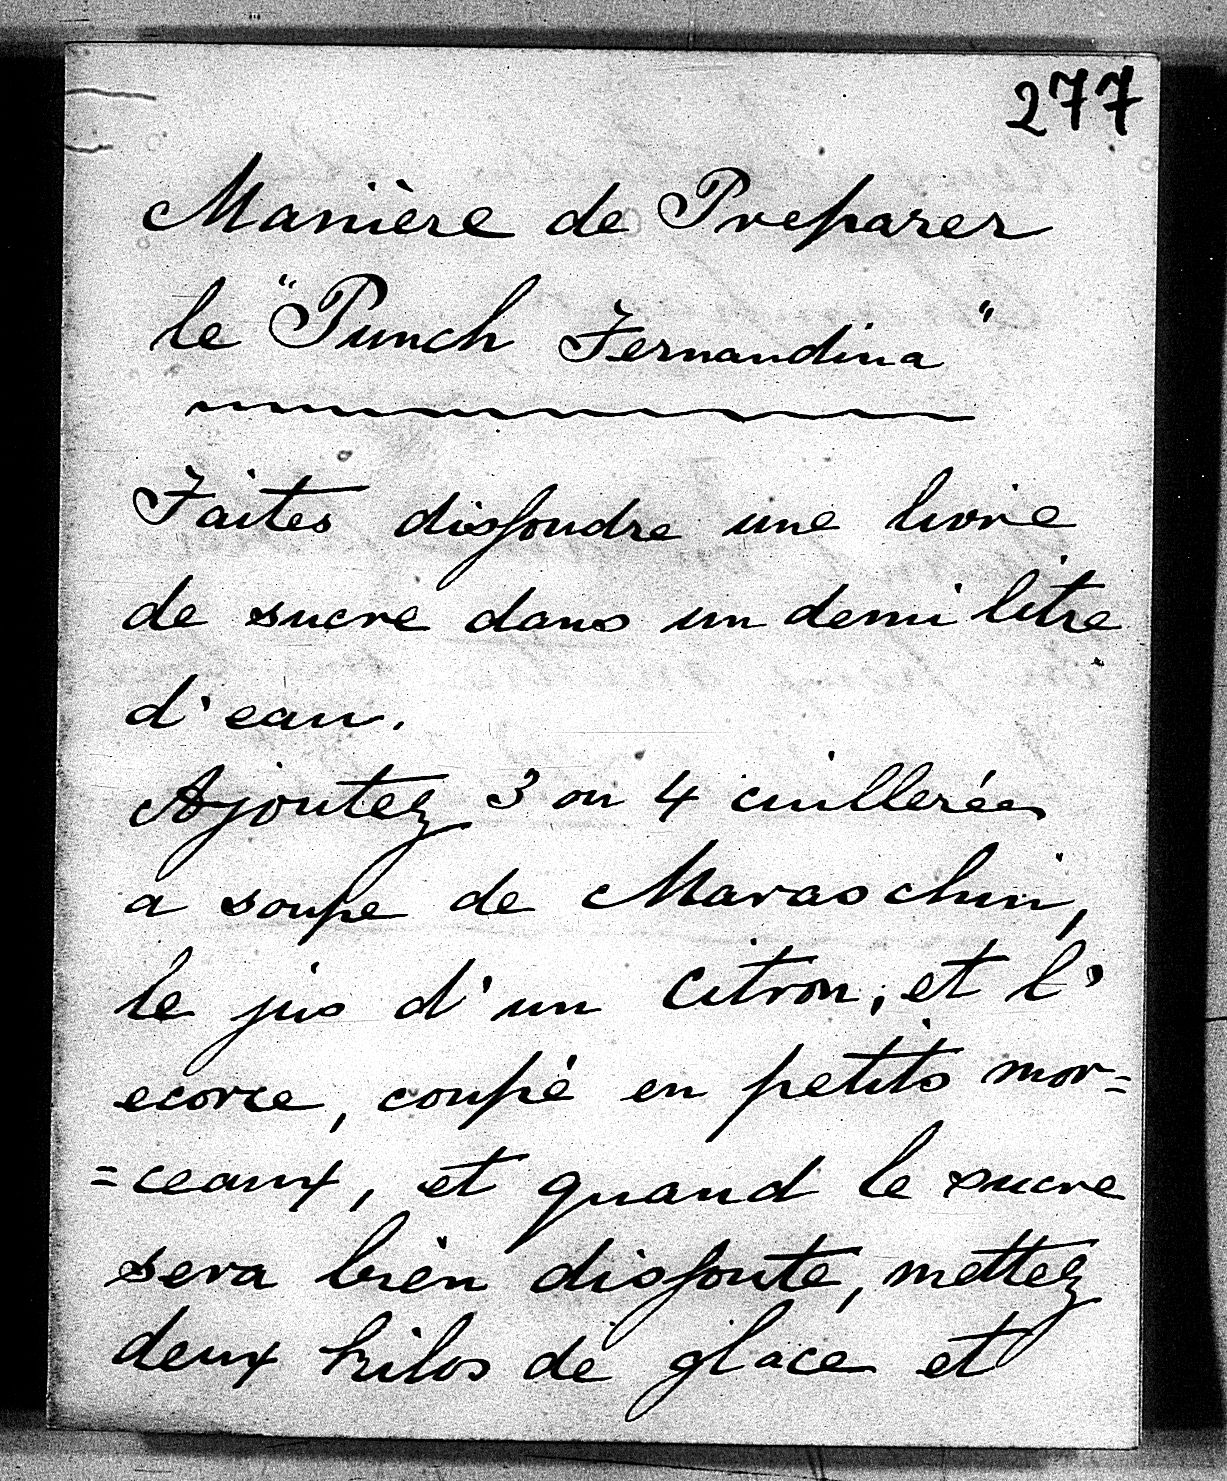 277
Manière de Preparer
le "Punch Fernandina"
Faites dissoudre une livre
de sucre dans un demi litre
d'eau.
Ajoutez 3 ou 4 cuillerées
a soupe de Maraschin,
le jus d'un citron, et l'
ecorce, coupé en petits mor=
=ceaux, et quand le sucre
sera bien dissoute, mettez
deux kilos de glace et